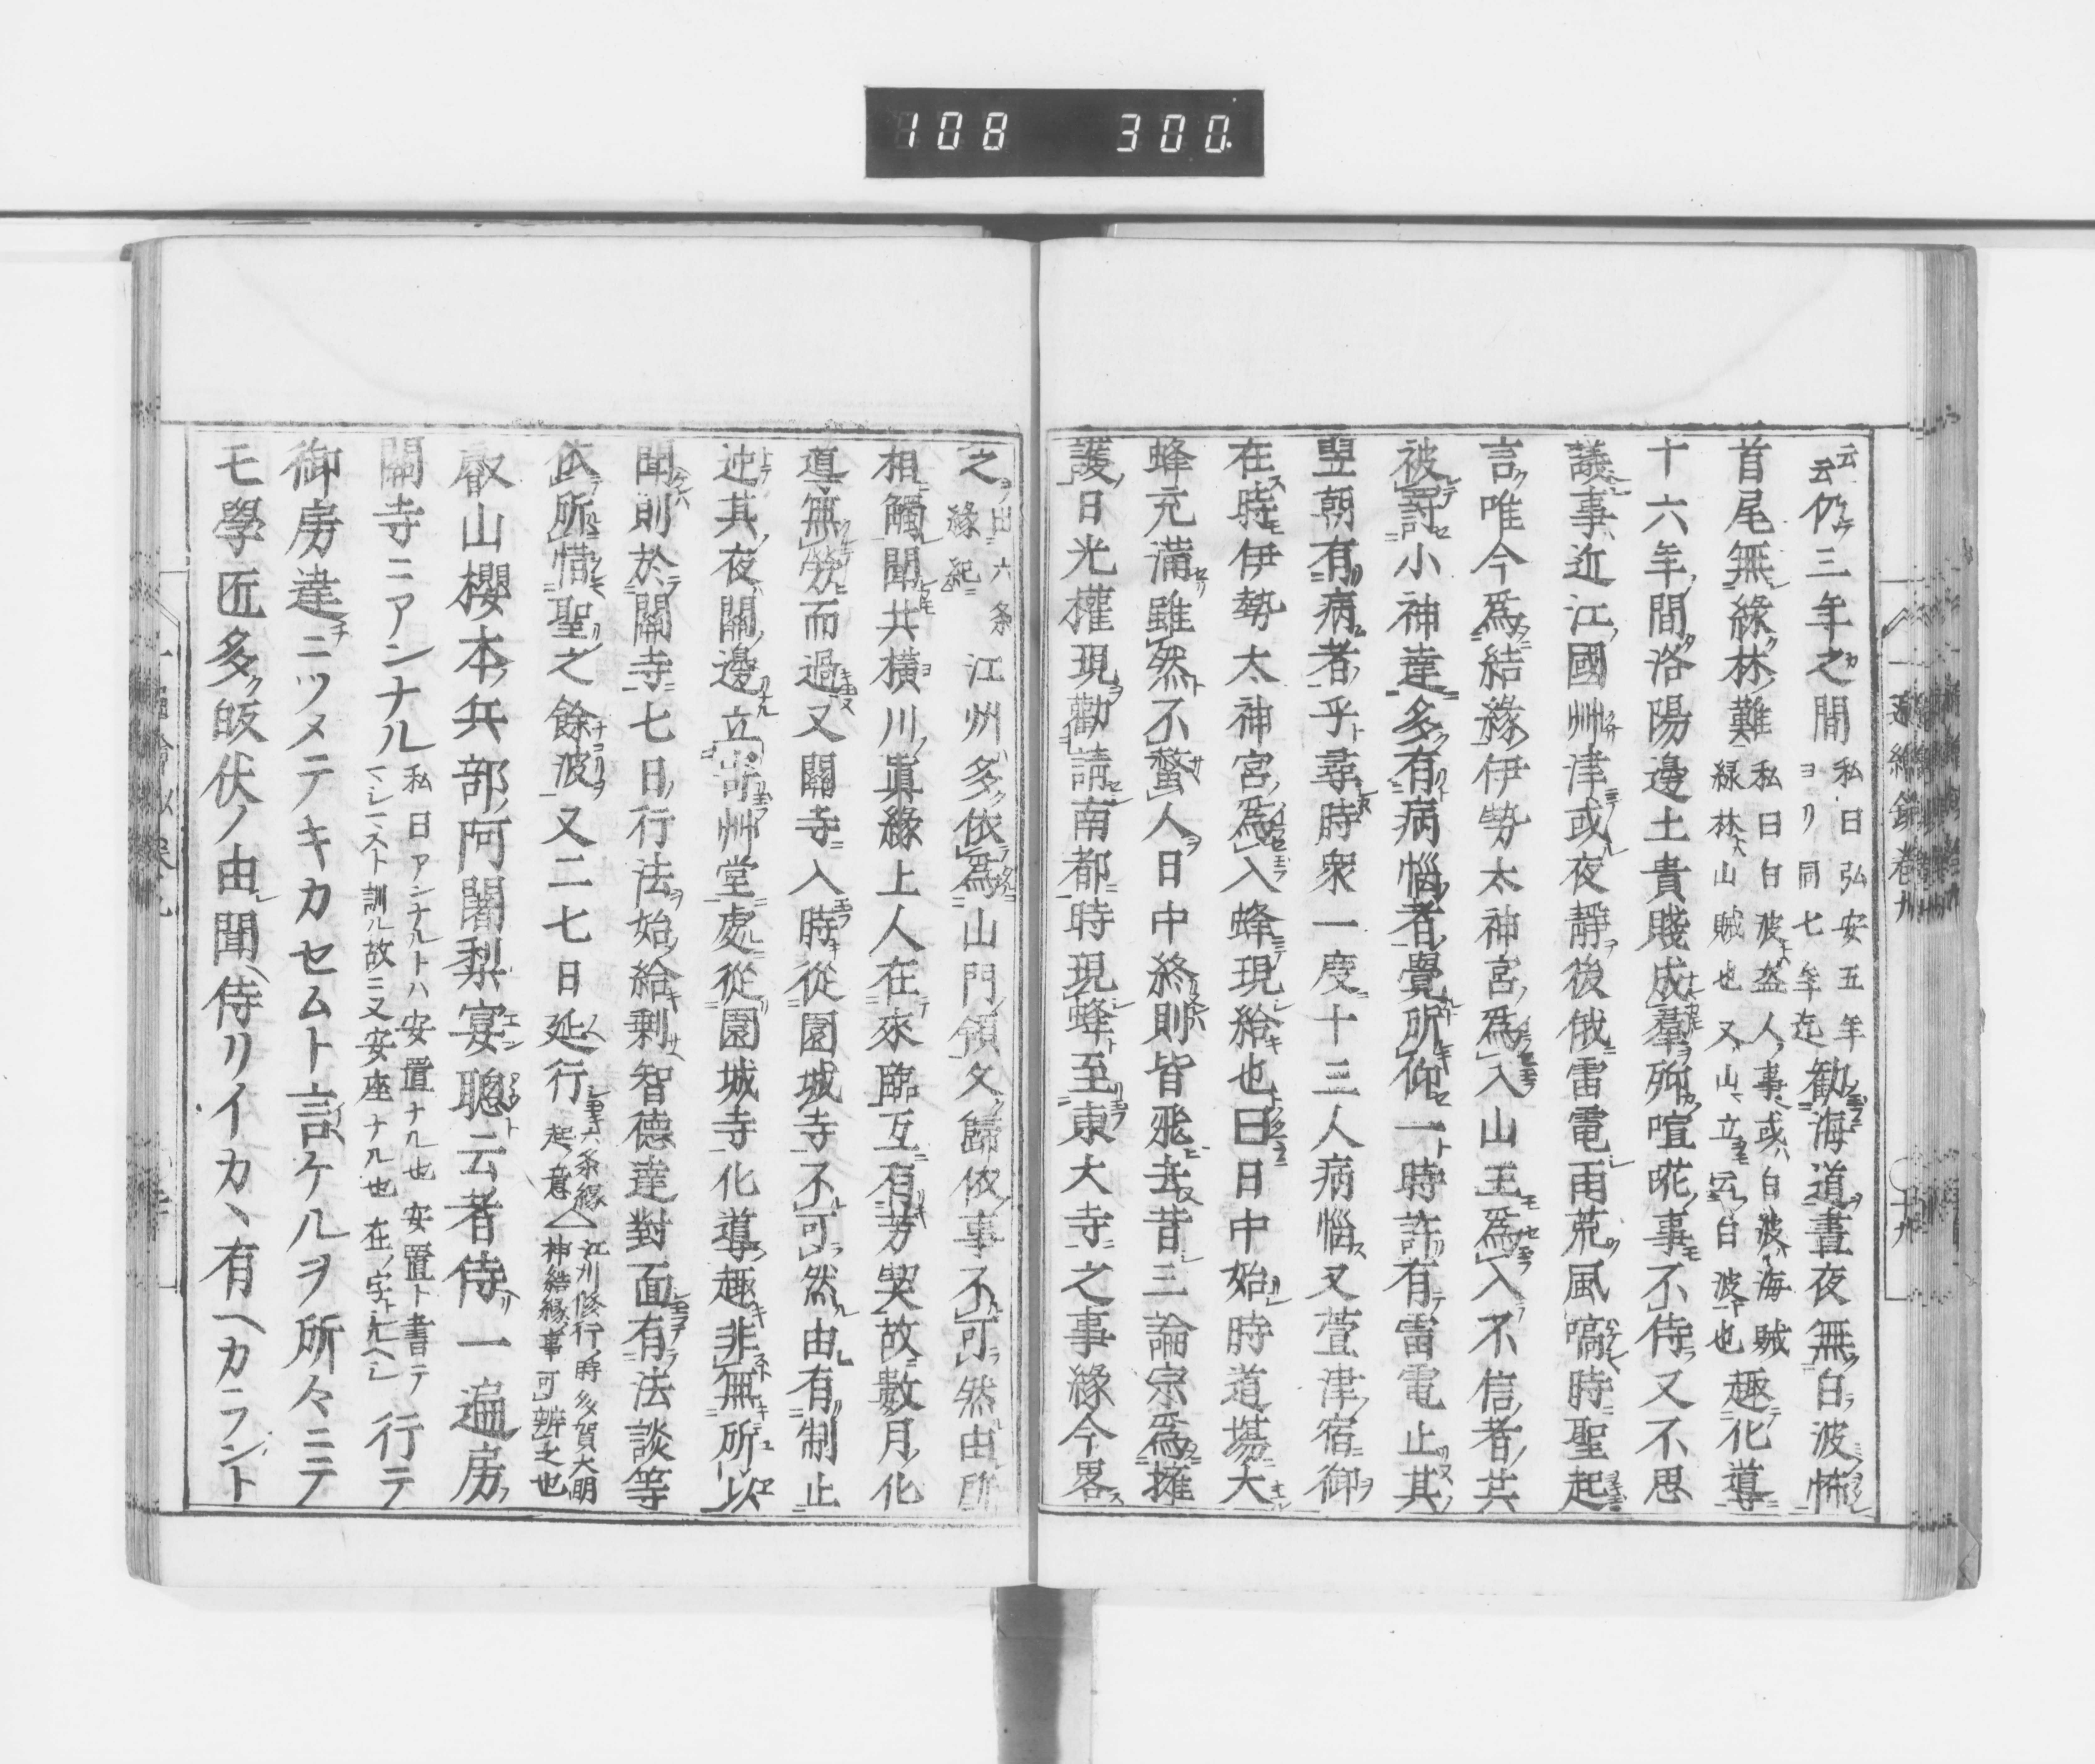 108 300
云云仍三年之間私曰弘安五年ヨリ同七年迄勧海道晝夜無白波怖
首尾無緑林難私曰白波盗人事或白波海賊緑林山賊也又山立云白波也趣化導
十六年間洛陽邊土貴賤成羣殉喧𠯁事不侍又不思
議事近江國艸津或夜靜後俄雷電雨荒風嗃時聖起
言唯今爲結緣伊勢太神宮爲入山王爲入不信者共
被討小神達多有病惱者覺所仰一時許有雷電止其
翌朝有病者乎尋時衆一度十三人病惱又萱津宿御
在時伊勢太神宮爲入蜂現給也曰日中始時道塲大
蜂充滿雖然不螫人日中終則皆飛去昔三論宗爲擁
護日光權現勸請南都時現蜂至東大寺之事緣今畧
之由六条緣起江州多依爲山門領文歸依事不可然由所
相觸聞共橫川眞緣上人在來臨互有芳契故數月化
導無勞而過又關寺入時從園城寺不可然由有制止
迚其夜關邊立寄艸堂處從園城寺化導趣非無所以
聞則於關寺七日行法始給剩智德達對面有法談等
依所惜聖之餘波又二七日延行六条緣起意江州修行時多賀大明神結緣事可辨之也
叡山櫻本兵部阿闍梨宴聰云者侍一遍房
關寺ニアンナル私曰アンナルトハ安置ナル也安置ト書テマシマスト訓ル故ニ又安座ナル也在ノ字ナルヘシ行テ
御房達ニツメテキカセムト言ケルヲ所々ニテ
モ學匠多皈伏ノ由聞侍リイカヽ有ヘカラント